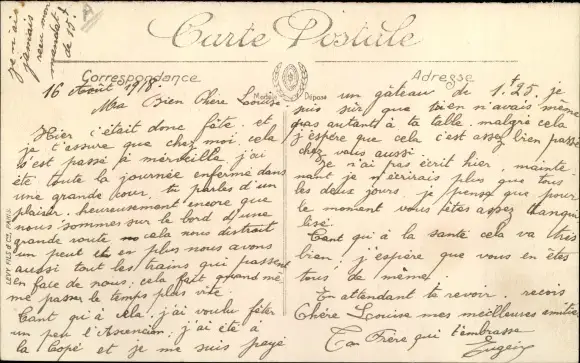 je n'ai
jamais
reçu mon
mandat
de 15f
A
Carte Postale
Correspondance
Adresse
Modèle Déposé
LEVY FILS & Cie, PARIS
16 Août 1918.
Ma Bien Chère Louise
Hier c'était donc fête et
je t'assure que chez moi, cela
s'est passé à merveille, j'ai
été toute la journée enfermé dans
une grande cour, tu parles d'un
plaisir. heureusement encore que
nous sommes sur le bord d'une
grande route cela nous distrait
un peut en plus nous avons
aussi tout les trains qui passent
en face de nous; cela fait quand même
me passer le temps plus vite.
Tant qu'à cela, j'ai voulu fêter
un peu l'Ascension, j'ai été à
la Copé et je me suis payé
un gâteau du 1f25. je
suis sûr que bien n'avais même
pas autant à ta table. malgré cela
j'espère que cela c'est assez bien passé
chez vous aussi.
Je n'ai pas écrit hier, mainte
nant je n'écrirais plus que tous
les deux jours, je pense que pour
le moment vous êtes assez tranqui
lisé.
Tant qui à la santé cela va très
bien, j'espère que vous en êtes
tous de même.
En attendant te revoir, reçois
Chère Louise mes meilleures amitiés
Ton Frère qui t'embrasse